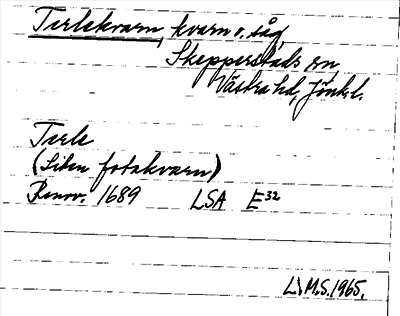 Terlekvarn, kvarn o. såg,
Skepperstads sn
Västra hd, Jönk.l.
Terle
(Liten fotakvarn)
Renov. 1689 LSA E³²
L.M.S.1965.